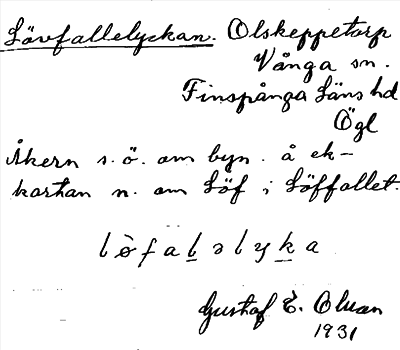 Lövfallelyckan. Olskeppetorp
Vånga sn.
Finspånga Läns hd
Ögl
Åkern s.ö. om byn. å ek-
kartan n. om Löf i Löffallet.
l ò̈ f a l ə l y k a
Gustaf E. Olson
1931